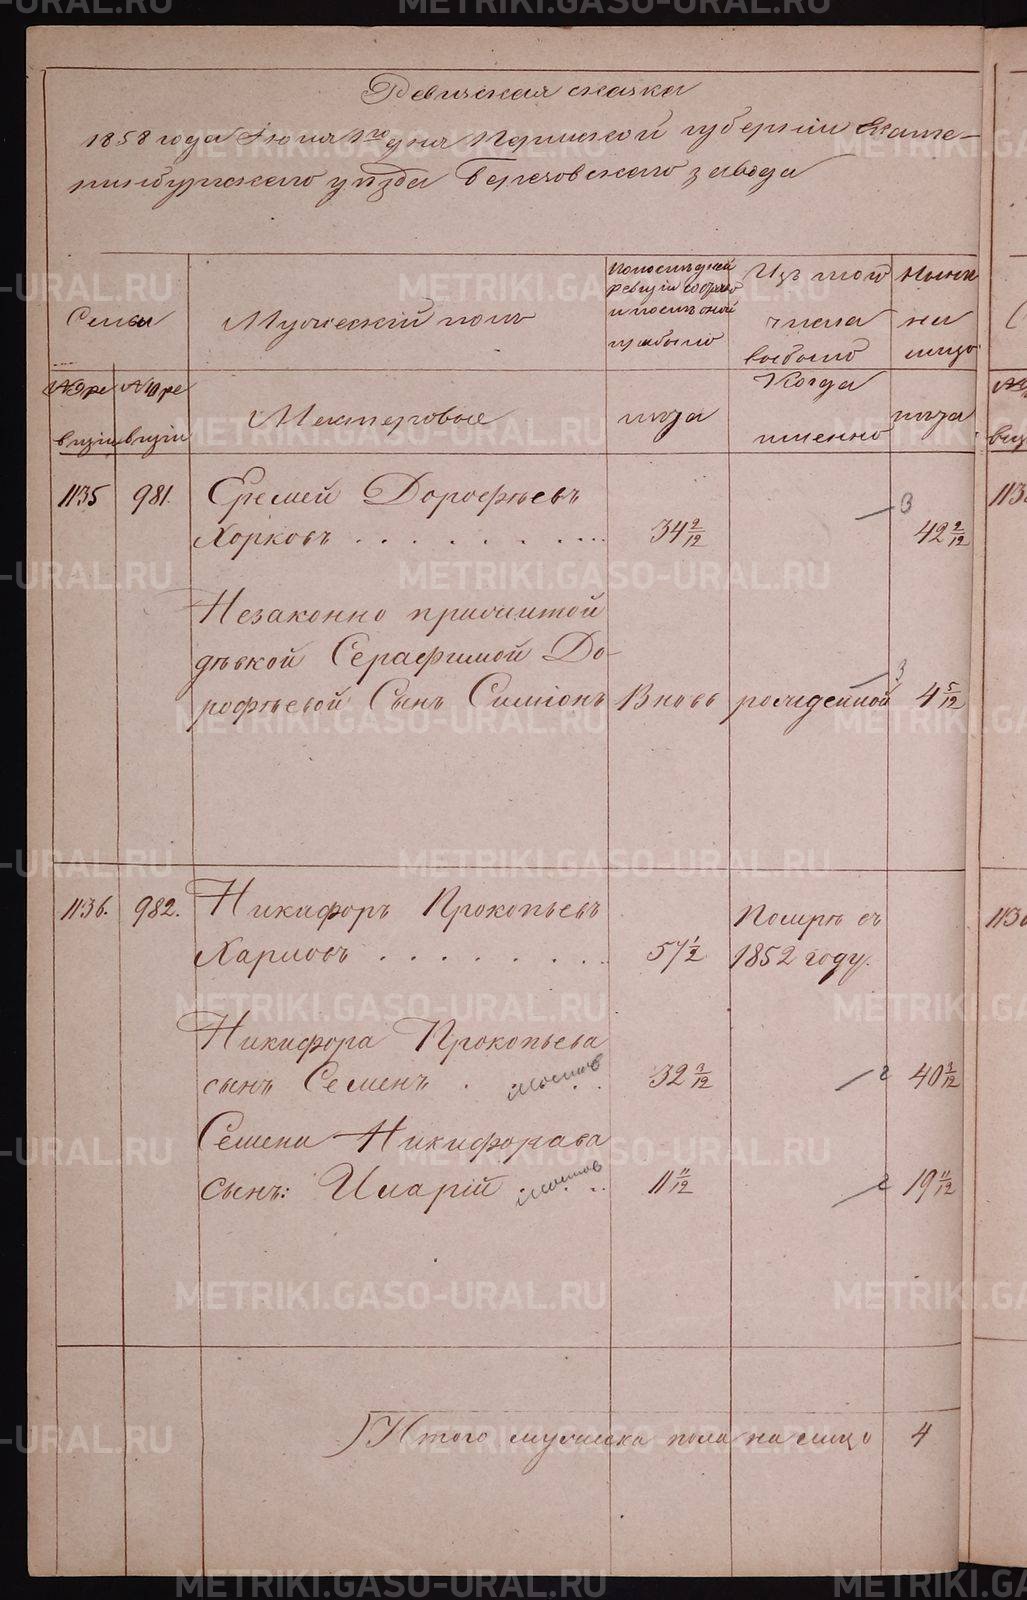 Ревизская сказка
1858 года Июня 1го дня Пермской губернии Екате-
ринбургского уѣзда Березовского завода
Семьи
Мужескій полъ
По последней
ревизіи состояло
и после оной
прибыло
Изъ того
числа
выбыло
Нынѣ
на
лицо
№ 9 ре
визіи
№ 10 ре
визіи
Мастеровые
лѣта
Когда
именно
лѣта
1135 981. Еремей Дорофѣевъ 3
Хорковъ . . . . . . . . . . 34 2/12 42 2/12
Незаконно прижитой
дѣвкой Серафимой До-
рофѣевой Сынъ Симіонъ Вновь рожденной 3 4 5/12
1136. 982. Никифоръ Прокопьевъ Помре въ
Харловъ . . . . . . . . . 57 1/2 1852 году.
Никифора Прокопьева
сынъ Семенъ . . . . 32 3/12 2 40 3/12
Семена Никифорава
сынъ: Иларій . . . . 11 11/12 2 19 11/12
Итого мужеска пола на лицо 4
METRIKI.GASO-URAL.RU